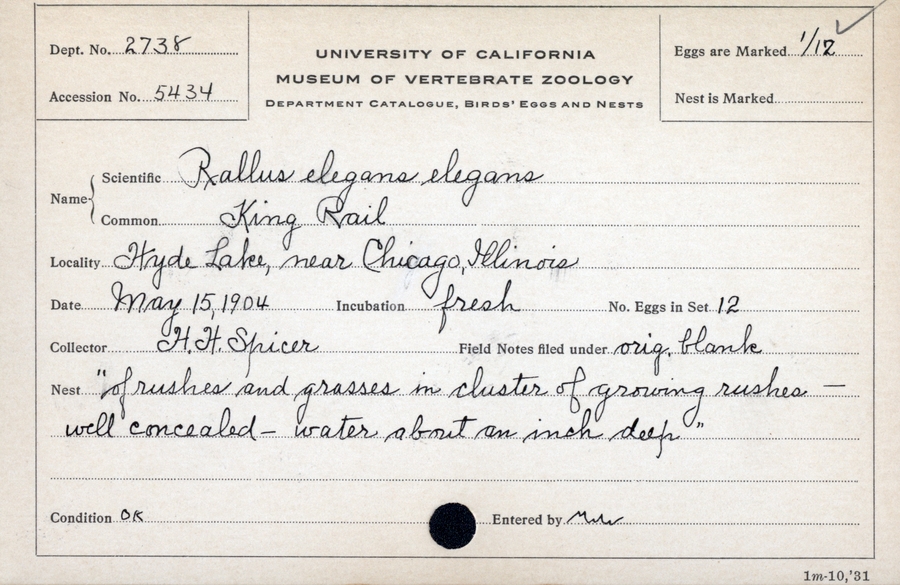 Dept. No. 2738
Accession No. 5434
UNIVERSITY OF CALIFORNIA
MUSEUM OF VERTEBRATE ZOOLOGY
DEPARTMENT CATALOGUE, BIRDS' EGGS AND NESTS
Eggs are Marked 1/12
Nest is Marked
Name
Scientific Rallus elegans elegans
Common King Rail
Locality Hyde Lake, near Chicago, Illinois
Date May 15, 1904 Incubation fresh No. Eggs in Set 12
Collector H. H. Spicer Field Notes filed under orig. blank
Nest "of rushes and grasses in cluster of growing rushes —
well concealed – water about an inch deep"
Condition OK Entered by
1m-10,'31